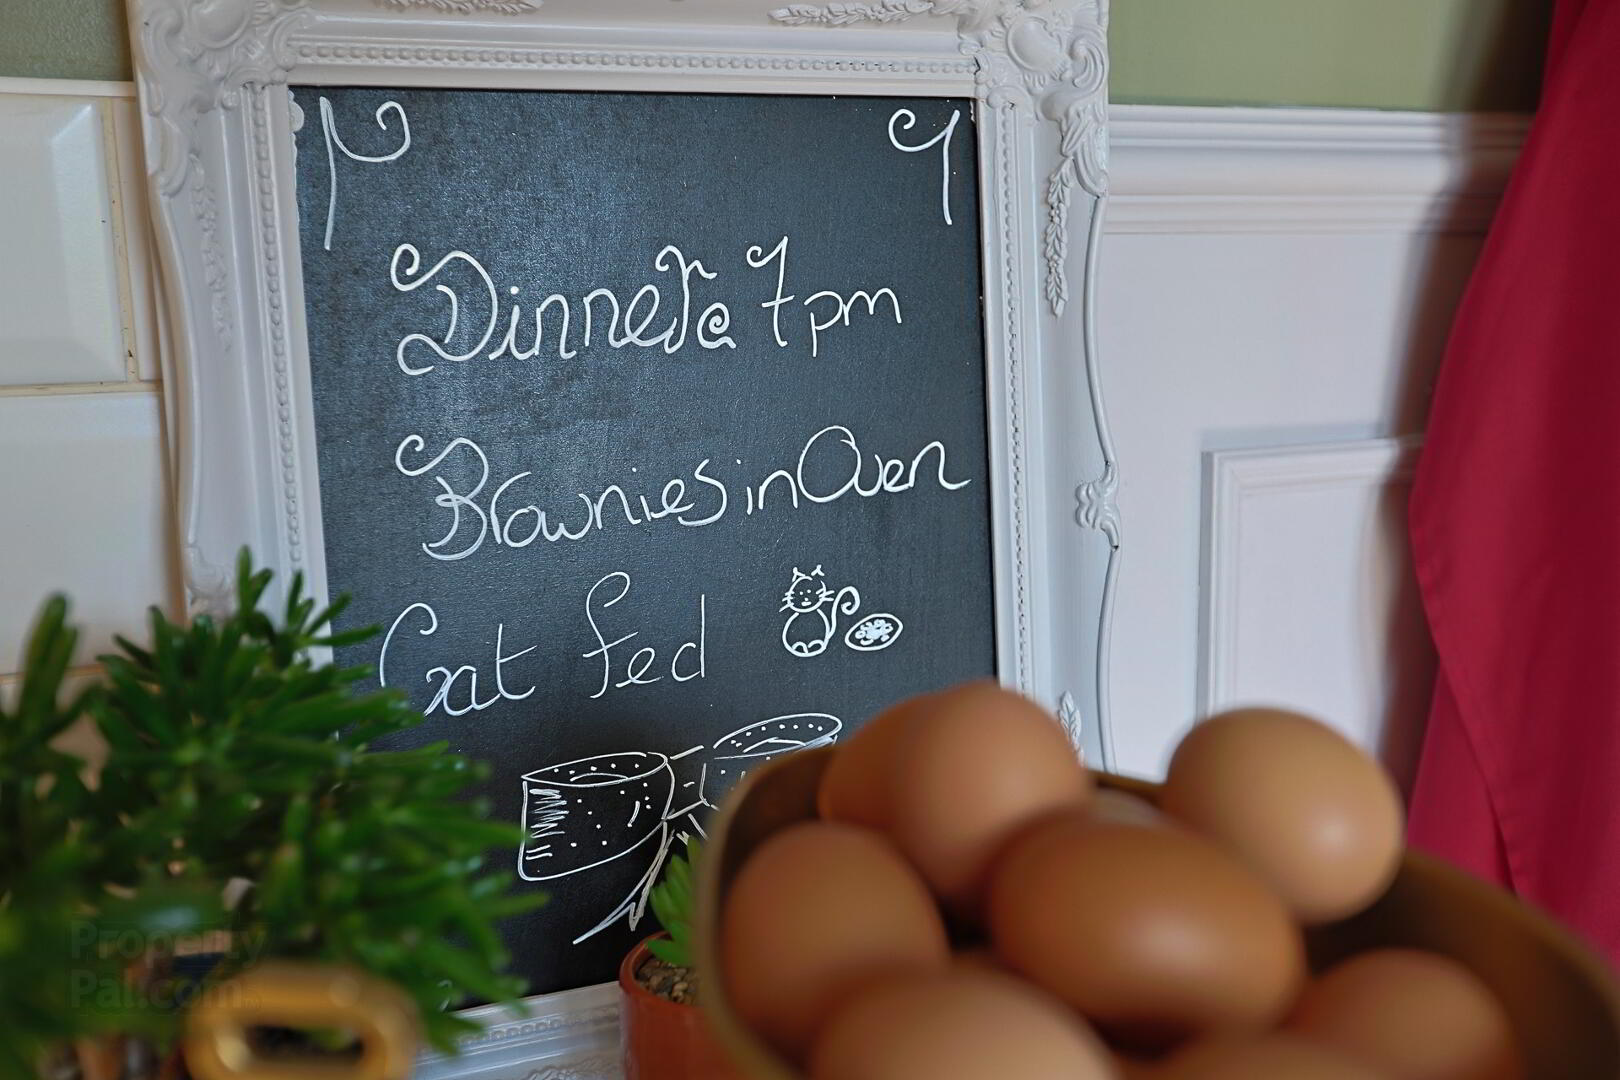 Dinner @ 7pm
Brownies in Oven
Cat fed
PropertyPal.com